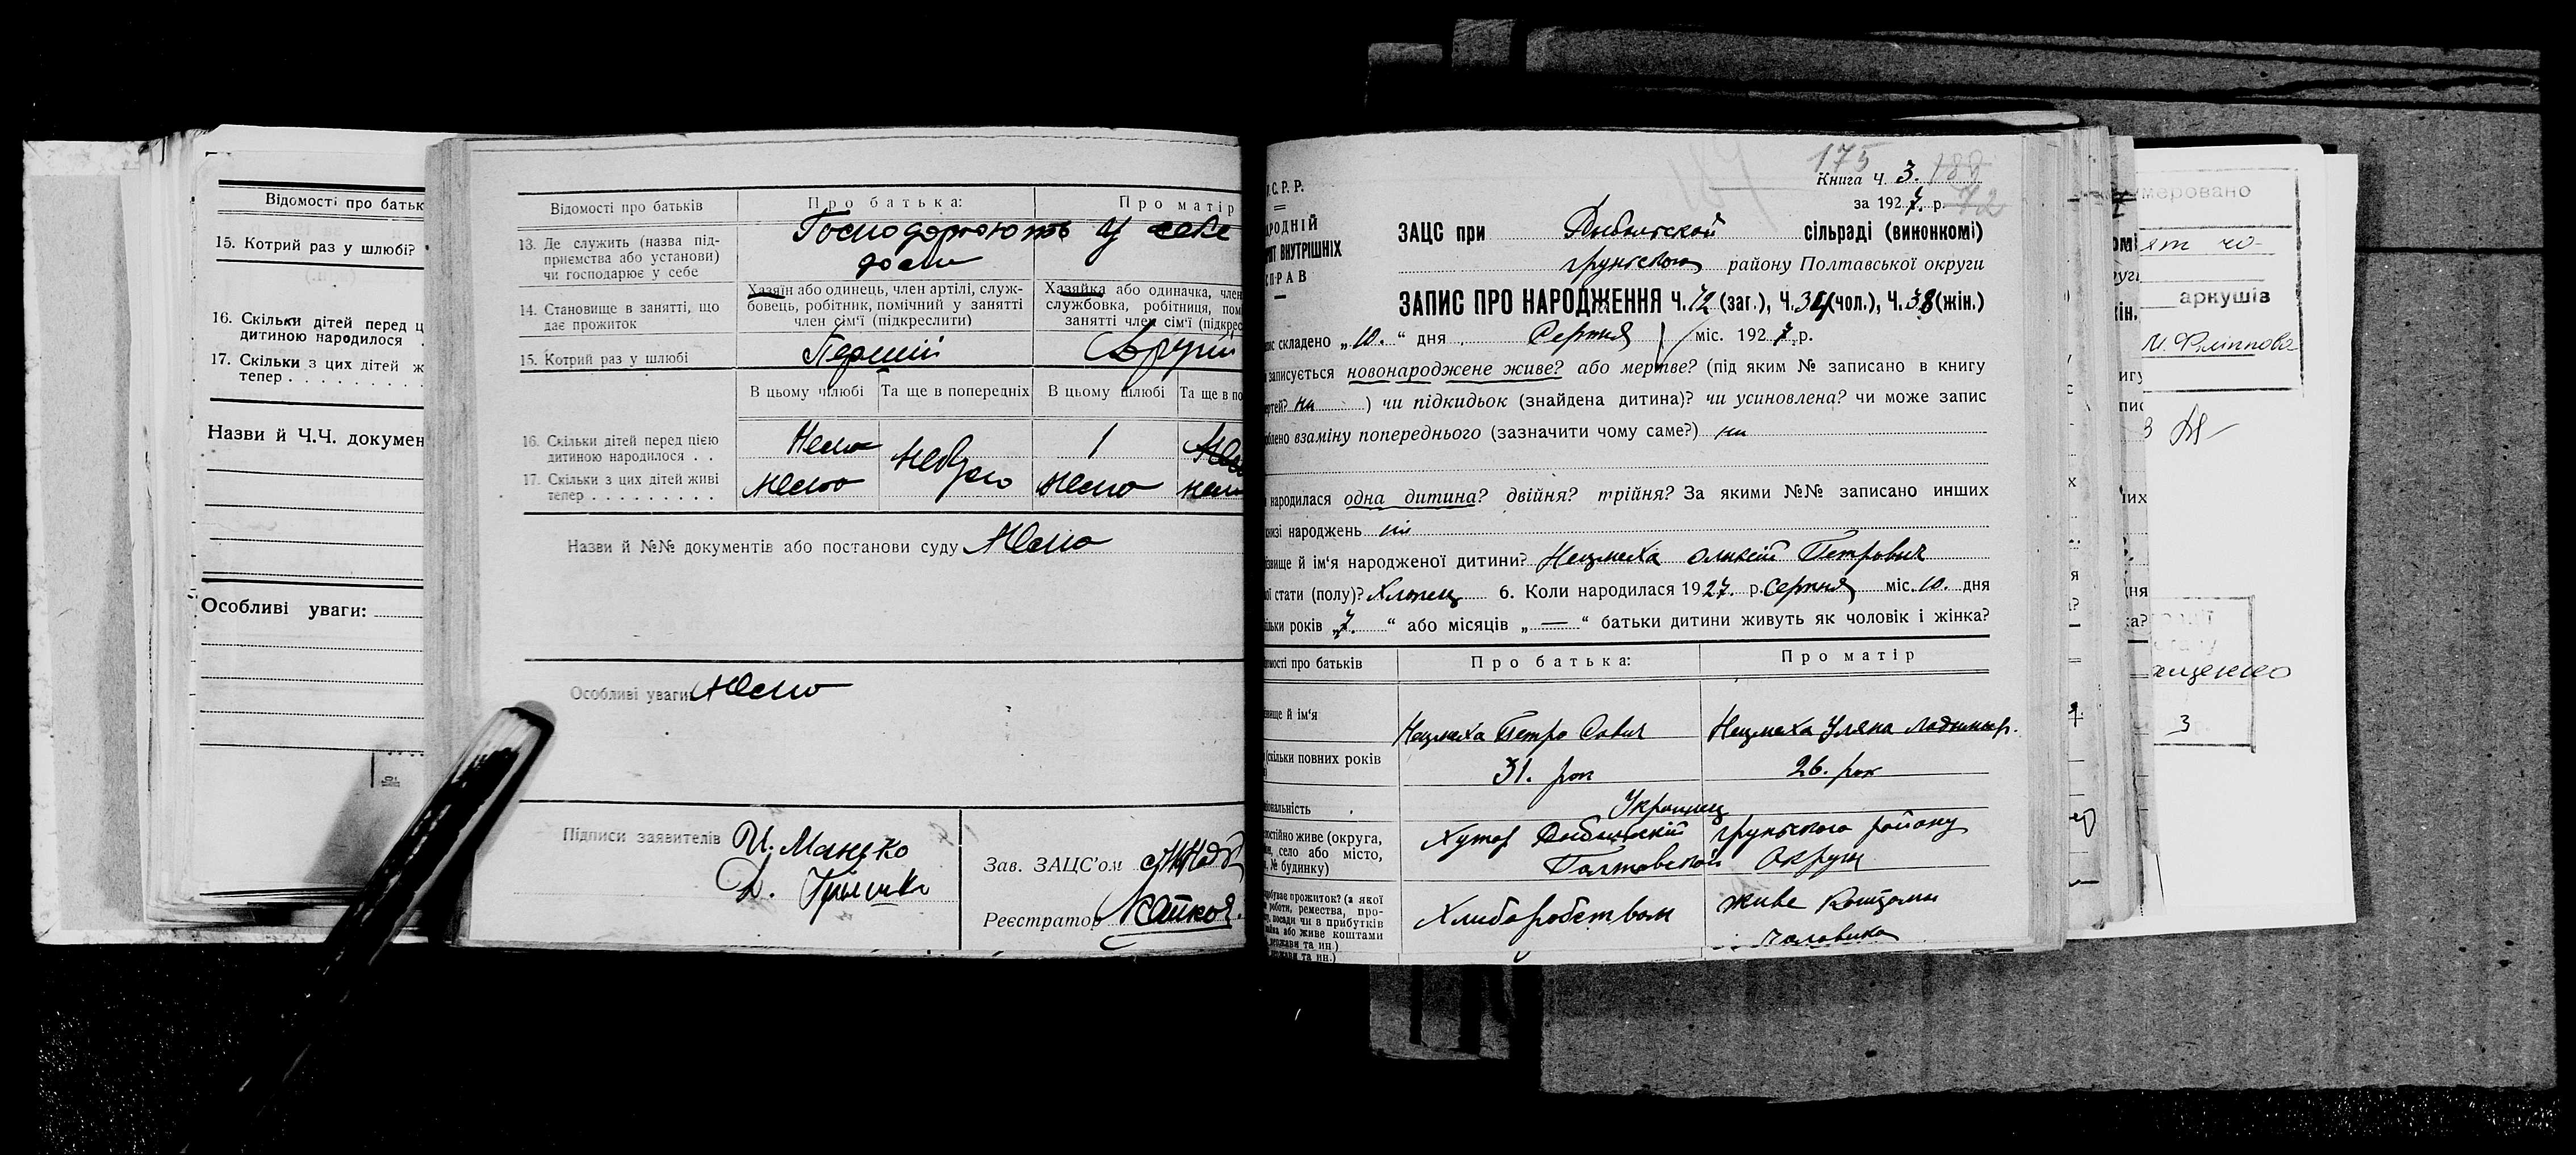 Відомості про батьк
15. Котрий раз у шлюбі?
16. Скільки дітей перед ц
дитиною народилося
17. Скільки з цих дітей ж
тепер . . . . . . . . .
Назви й Ч.Ч. докумен
Особливі уваги:
Відомості про батьків
Про батька:
Про матір
13. Де служить (назва під-
приємства або установи)
чи господарює у себе
Господарюють у себе
дома
14. Становище в занятті, що
дає прожиток
Хазяїн або одинець, член артілі, служ-
бовець, робітник, помічний у занятті
член сім'ї (підкреслити)
Хазяйка або одиначка, член
службовка, робітниця, пом
занятті член сім'ї (підкрес
15. Котрий раз у шлюбі
Перший
Другий
В цьому шлюбі
Та ще в попередніх
В цьому шлюбі
Та ще в по
16. Скільки дітей перед цією
дитиною народилося . .
Нема
небуло
1
17. Скільки з цих дітей живі
тепер . . . . . . . . .
Нема
нема
нем
Назви й №№ документів або постанови суду Нема
Особливі уваги Нема
Підписи заявителів
Зав. ЗАЦС'ом
Реєстратор
175
189
188
72
Книга Ч. 3.
за 1927 р.
С. Р. Р.
РОДНІЙ
ВНУТРІШНІХ
ПРАВ
ЗАЦС при сільраді (виконкомі)
грунського району Полтавської округи
ЗАПИС ПРО НАРОДЖЕННЯ Ч. 72 (заг.), Ч. 34 (чол.), Ч. 38 (жін.)
ис складено „10.“ дня Серпня міс. 1927 р.
записується новонароджене живе? або мертве? (під яким № записано в книгу
ертей? ни ) чи підкидьок (знайдена дитина)? чи усиновлена? чи може запис
облено взаміну попереднього (зазначити чому саме?) ни
народилася одна дитина? двійня? трійня? За якими №№ записано инших
книзі народжень ні
звище й ім'я народженої дитини? Нецмеха Олексій Петрович
ої стати (полу)? Хлопец 6. Коли народилася 1927. р. Серпня міс. 10. дня
ільки років „7.“ або місяців „—“ батьки дитини живуть як чоловік і жінка?
омості про батьків
Про батька:
Про матір
звище й ім'я
Нецмеха Петро Савич
Нецмеха Уляна Ладимыр.
(скільки повних років
31. рок
26. рок
ціональність
Украинец
остійно живе (округа,
село або місто,
№ будинку)
Хутор
грунського району
Полтавской Округи
обуває прожиток? (з якої
роботи, ремества, про-
посади чи з прибутків
або живе коштами
держави та ин.)
Хлиборобством
живе коштами
чоловика
умеровано
аркушів
3